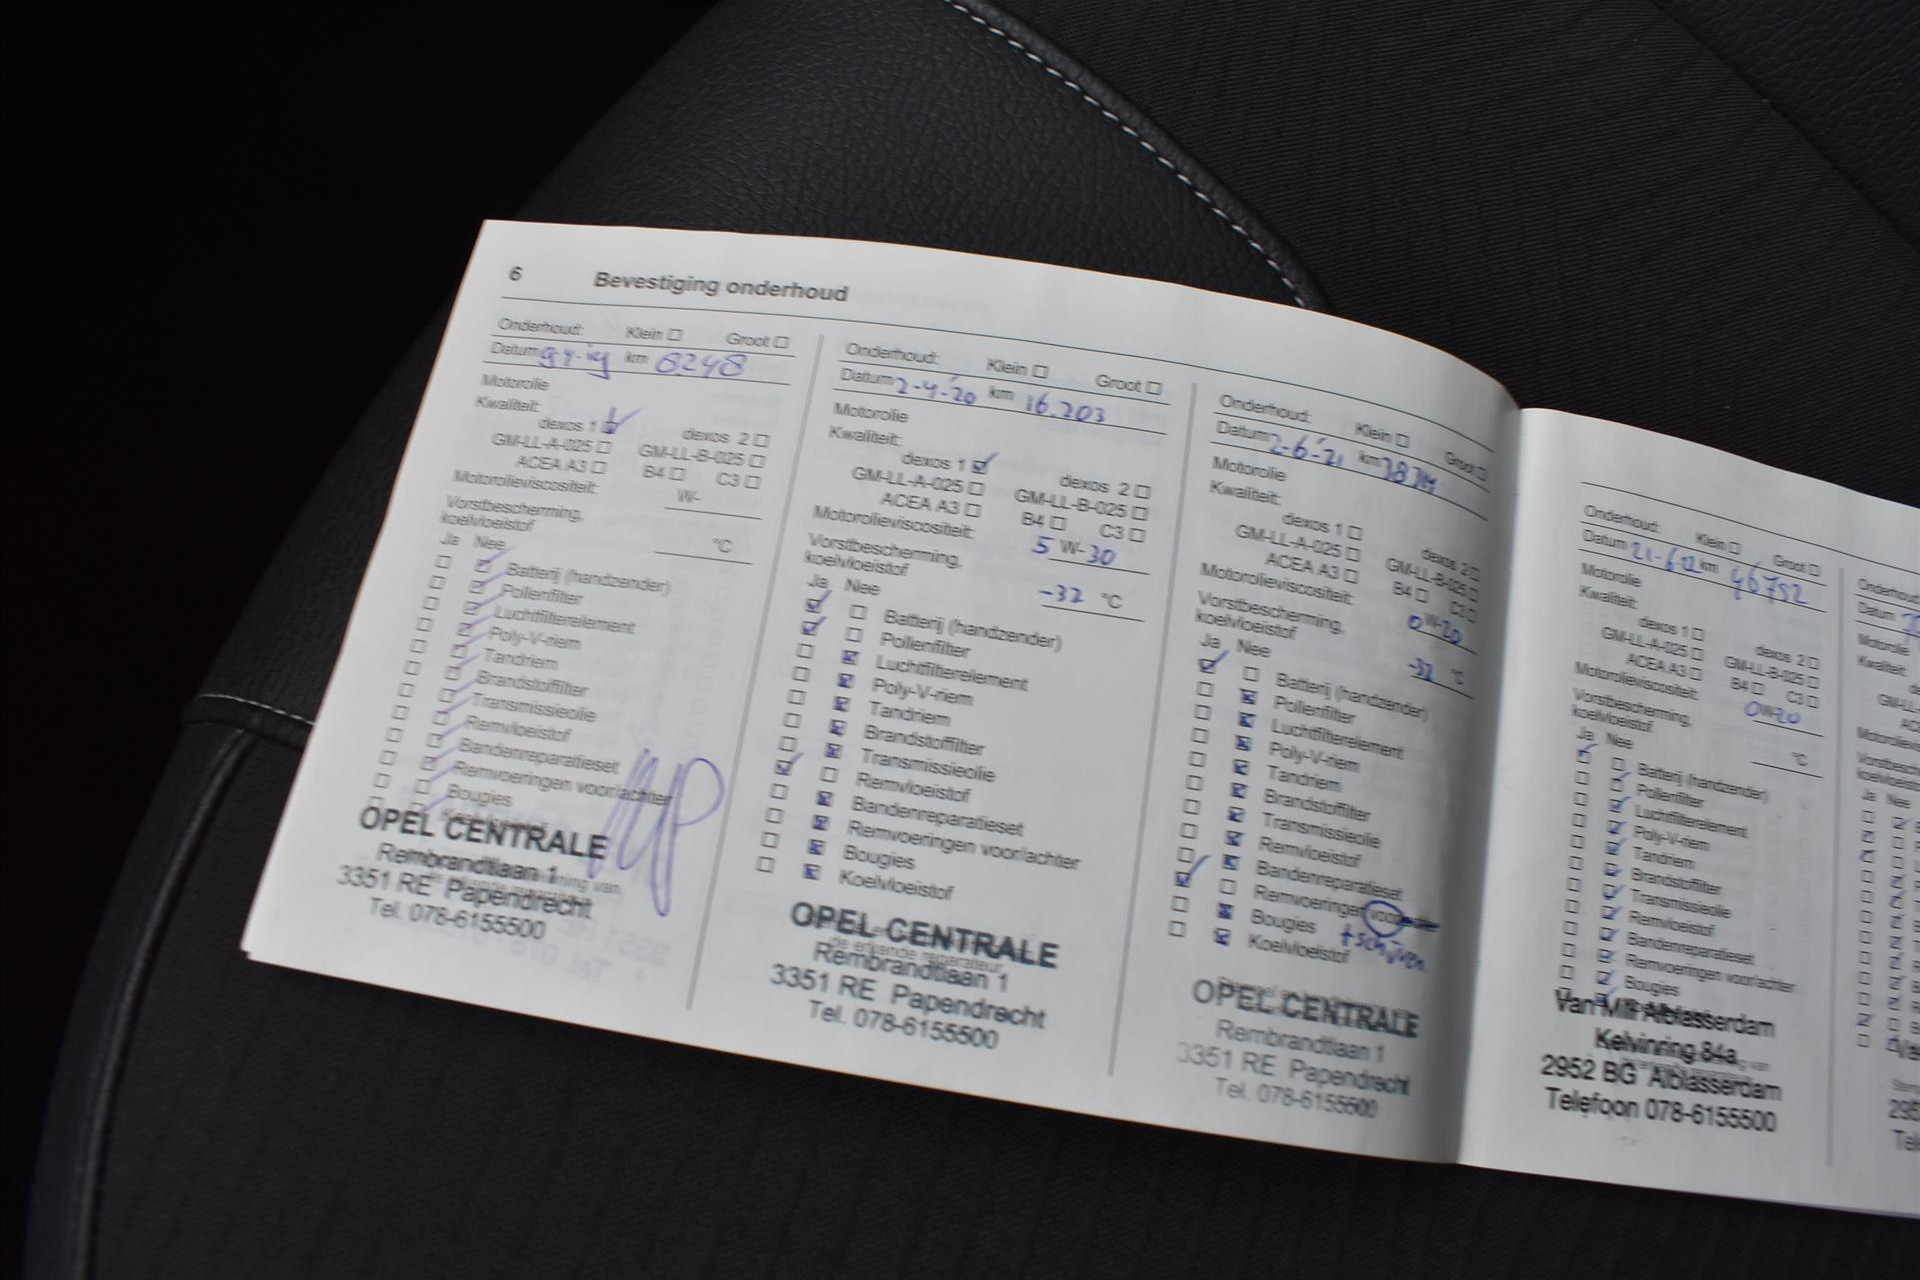 6 Bevestiging onderhoud
Onderhoud: Klein Groot
Datum km 6248
Motorolie
Kwaliteit:
dexos 1 dexos 2
GM-LL-A-025 GM-LL-B-025
ACEA A3 B4 C3
Motorolieviscositeit: W-
Vorstbescherming,
koelvloeistof °C
Ja Nee
Batterij (handzender)
Pollenfilter
Luchtfilterelement
Poly-V-riem
Tandriem
Brandstoffilter
Transmissieolie
Remvloeistof
Bandenreparatieset
Remvoeringen voor/achter
Bougies
OPEL CENTRALE
Rembrandtlaan 1
3351 RE Papendrecht
Tel. 078-6155500
Onderhoud: Klein Groot
Datum 2-4-'20 km 16.203
Motorolie
Kwaliteit:
dexos 1 dexos 2
GM-LL-A-025 GM-LL-B-025
ACEA A3 B4 C3
Motorolieviscositeit: 5 W-30
Vorstbescherming,
koelvloeistof -32 °C
Ja Nee
Batterij (handzender)
Pollenfilter
Luchtfilterelement
Poly-V-riem
Tandriem
Brandstoffilter
Transmissieolie
Remvloeistof
Bandenreparatieset
Remvoeringen voor/achter
Bougies
Koelvloeistof
OPEL CENTRALE
de erkende reparateur
Rembrandtlaan 1
3351 RE Papendrecht
Tel. 078-6155500
Onderhoud: Klein Groot
Datum 2-6-'21 km
Motorolie
Kwaliteit:
dexos 1 dexos 2
GM-LL-A-025 GM-LL-B-025
ACEA A3 B4 C3
Motorolieviscositeit: 0 W-20
Vorstbescherming,
koelvloeistof -32 °C
Ja Nee
Batterij (handzender)
Pollenfilter
Luchtfilterelement
Poly-V-riem
Tandriem
Brandstoffilter
Transmissieolie
Remvloeistof
Bandenreparatieset
Remvoeringen voor/achter
Bougies + schijven
Koelvloeistof
OPEL CENTRALE
Rembrandtlaan 1
3351 RE Papendrecht
Tel. 078-6155500
Onderhoud: Klein Groot
Datum km 46752
Motorolie
Kwaliteit:
dexos 1 dexos 2
GM-LL-A-025 GM-LL-B-025
ACEA A3 B4 C3
Motorolieviscositeit: 0W-20
Vorstbescherming,
koelvloeistof °C
Ja Nee
Batterij (handzender)
Pollenfilter
Luchtfilterelement
Poly-V-riem
Tandriem
Brandstoffilter
Transmissieolie
Remvloeistof
Bandenreparatieset
Remvoeringen voor/achter
Bougies
Van Mill Alblasserdam
Kelvinring 84a
2952 BG Alblasserdam
Telefoon 078-6155500
Datum
Ja Nee